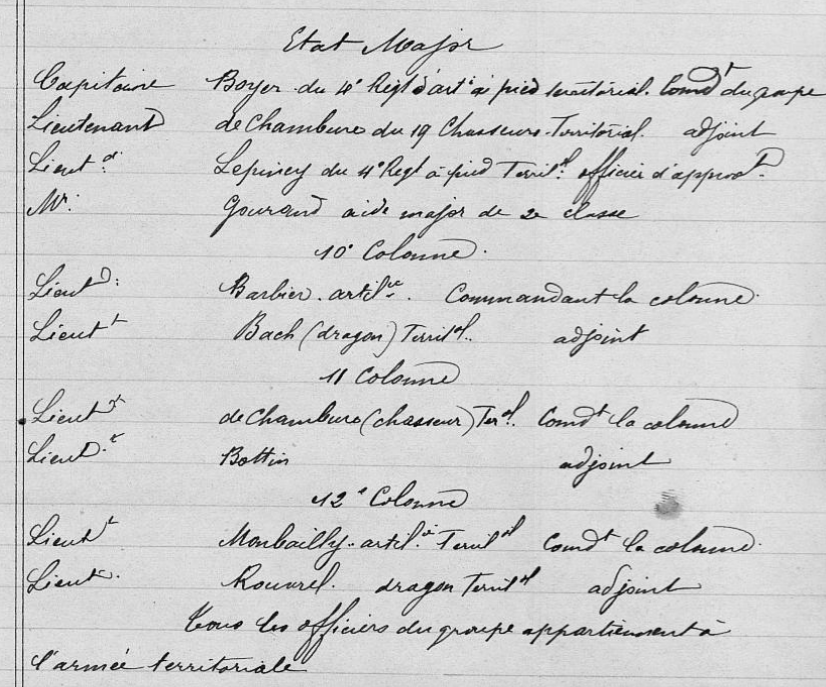 Etat Major
Capitaine Boyer du 4e Regt d'arte à pied territorial. Comdt du groupe
Lieutenant de Chambure du 19 Chasseurs Territorial. adjoint
Lieutt Lepincy du 4e Regt à pied Territal officier d'approvt
Mr. Gouraud aide major de 2e classe
10e Colonne.
Lieutt Barbier artilrie. Commandant la colonne.
Lieutt Bach (dragon) Territal. adjoint
11 Colonne
Lieutt de Chambure (chasseur) Teral. Comdt la colonne
Lieutt Bottin adjoint
12e Colonne
Lieutt Monbailly artilie Territal Comdt la colonne.
Lieutt. Rouvrel. dragon Territal adjoint
Tous les officiers du groupe appartiennent à
l'armée territoriale